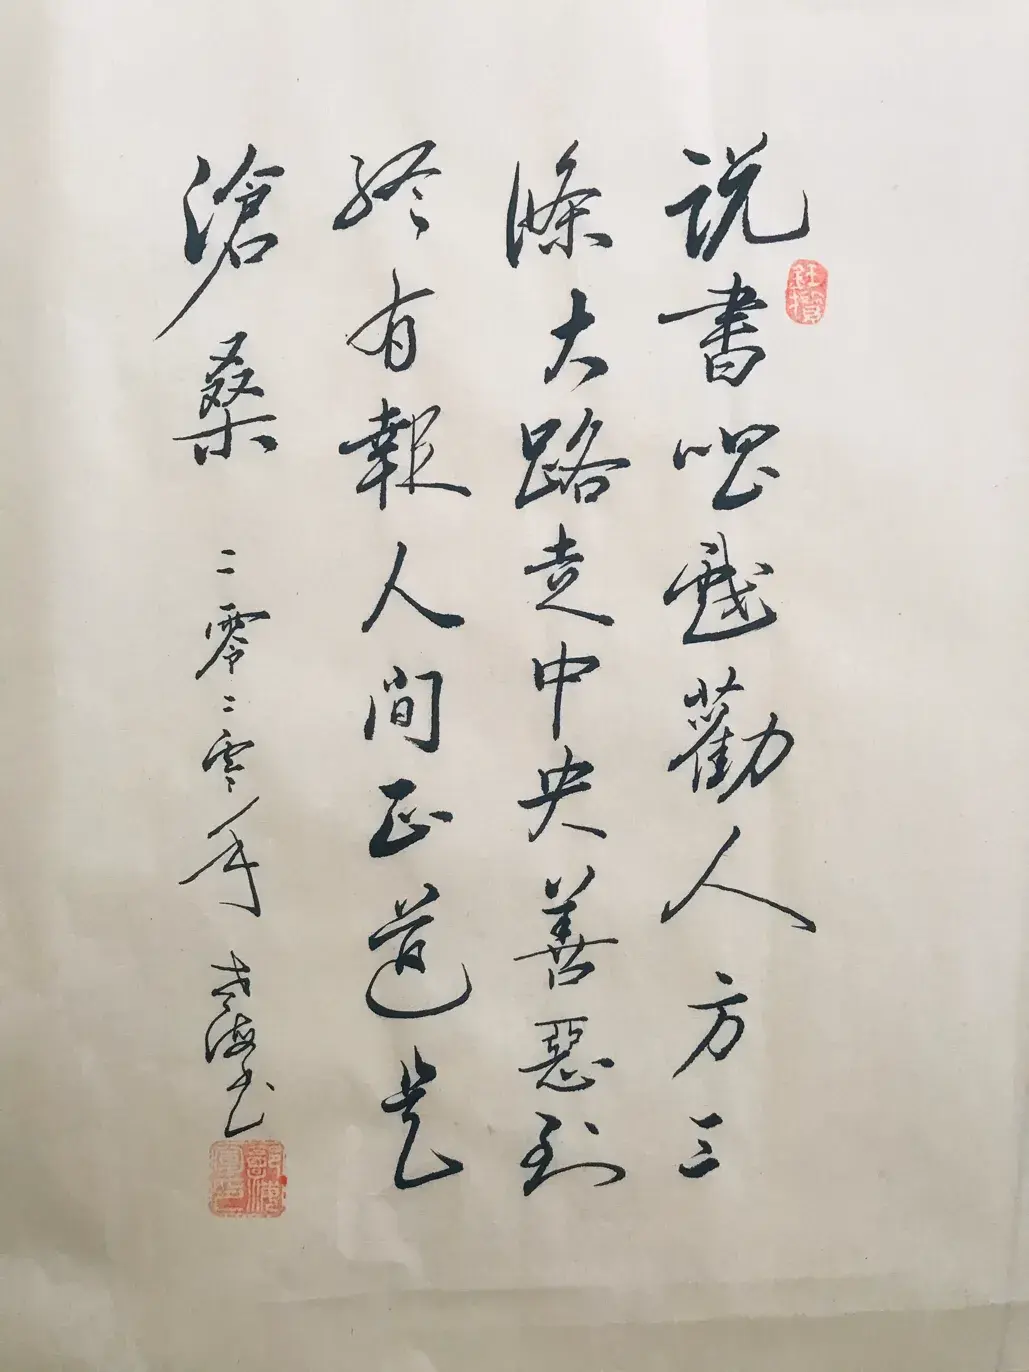 说書唱戲勸人方三
條大路走中央善惡到
終有報人间正道是
滄桑
二零二零年
海书